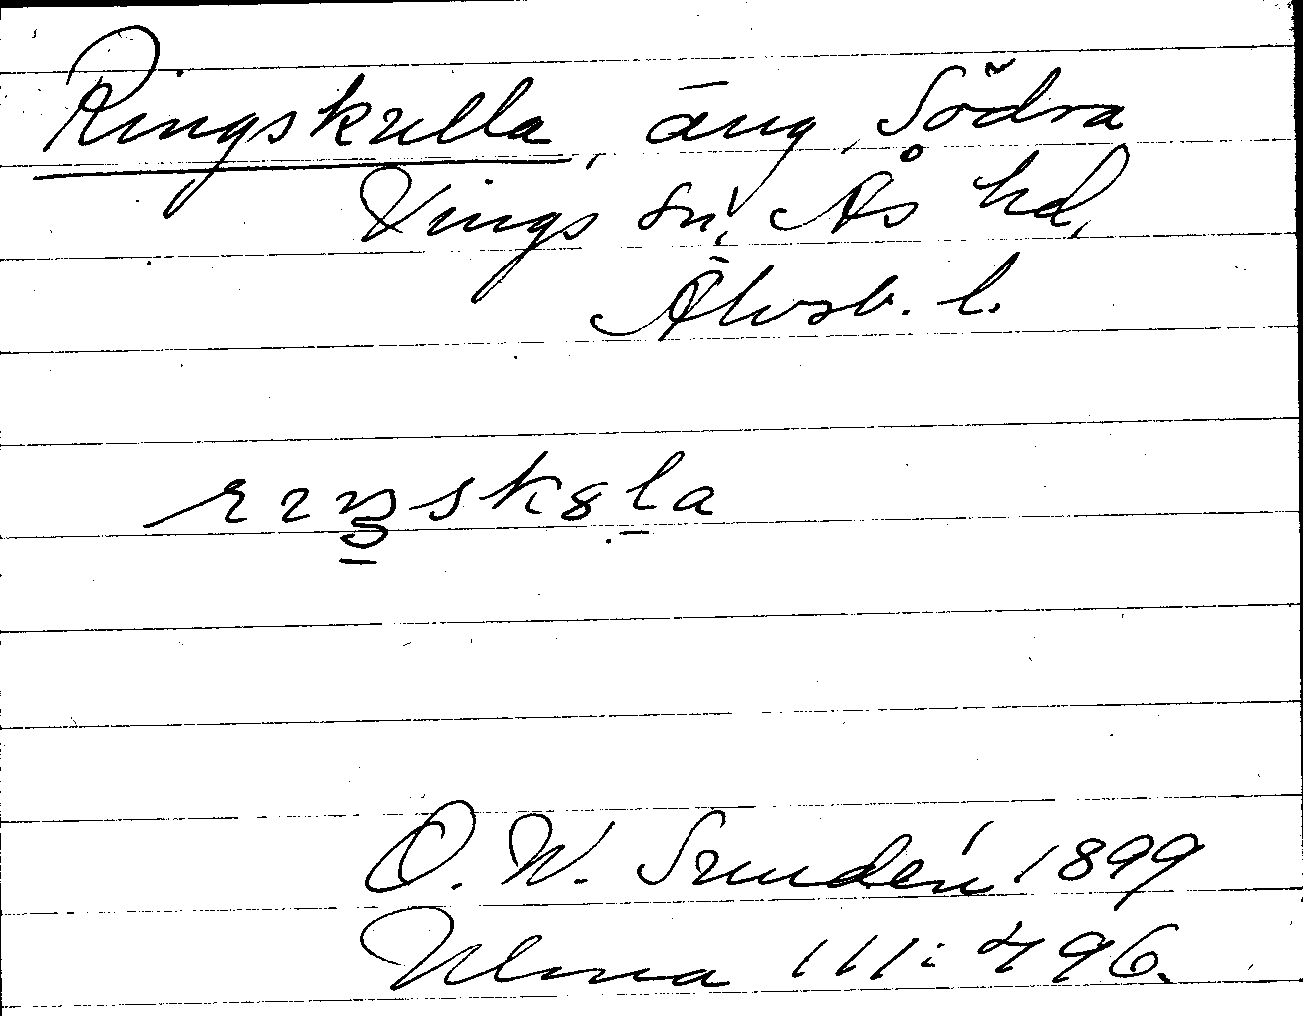 Ringskulla, äng, Södra
Vings sn, Ås hd,
Älvsb. l.
O. W. Sundén 1899
Ulma 111:496.